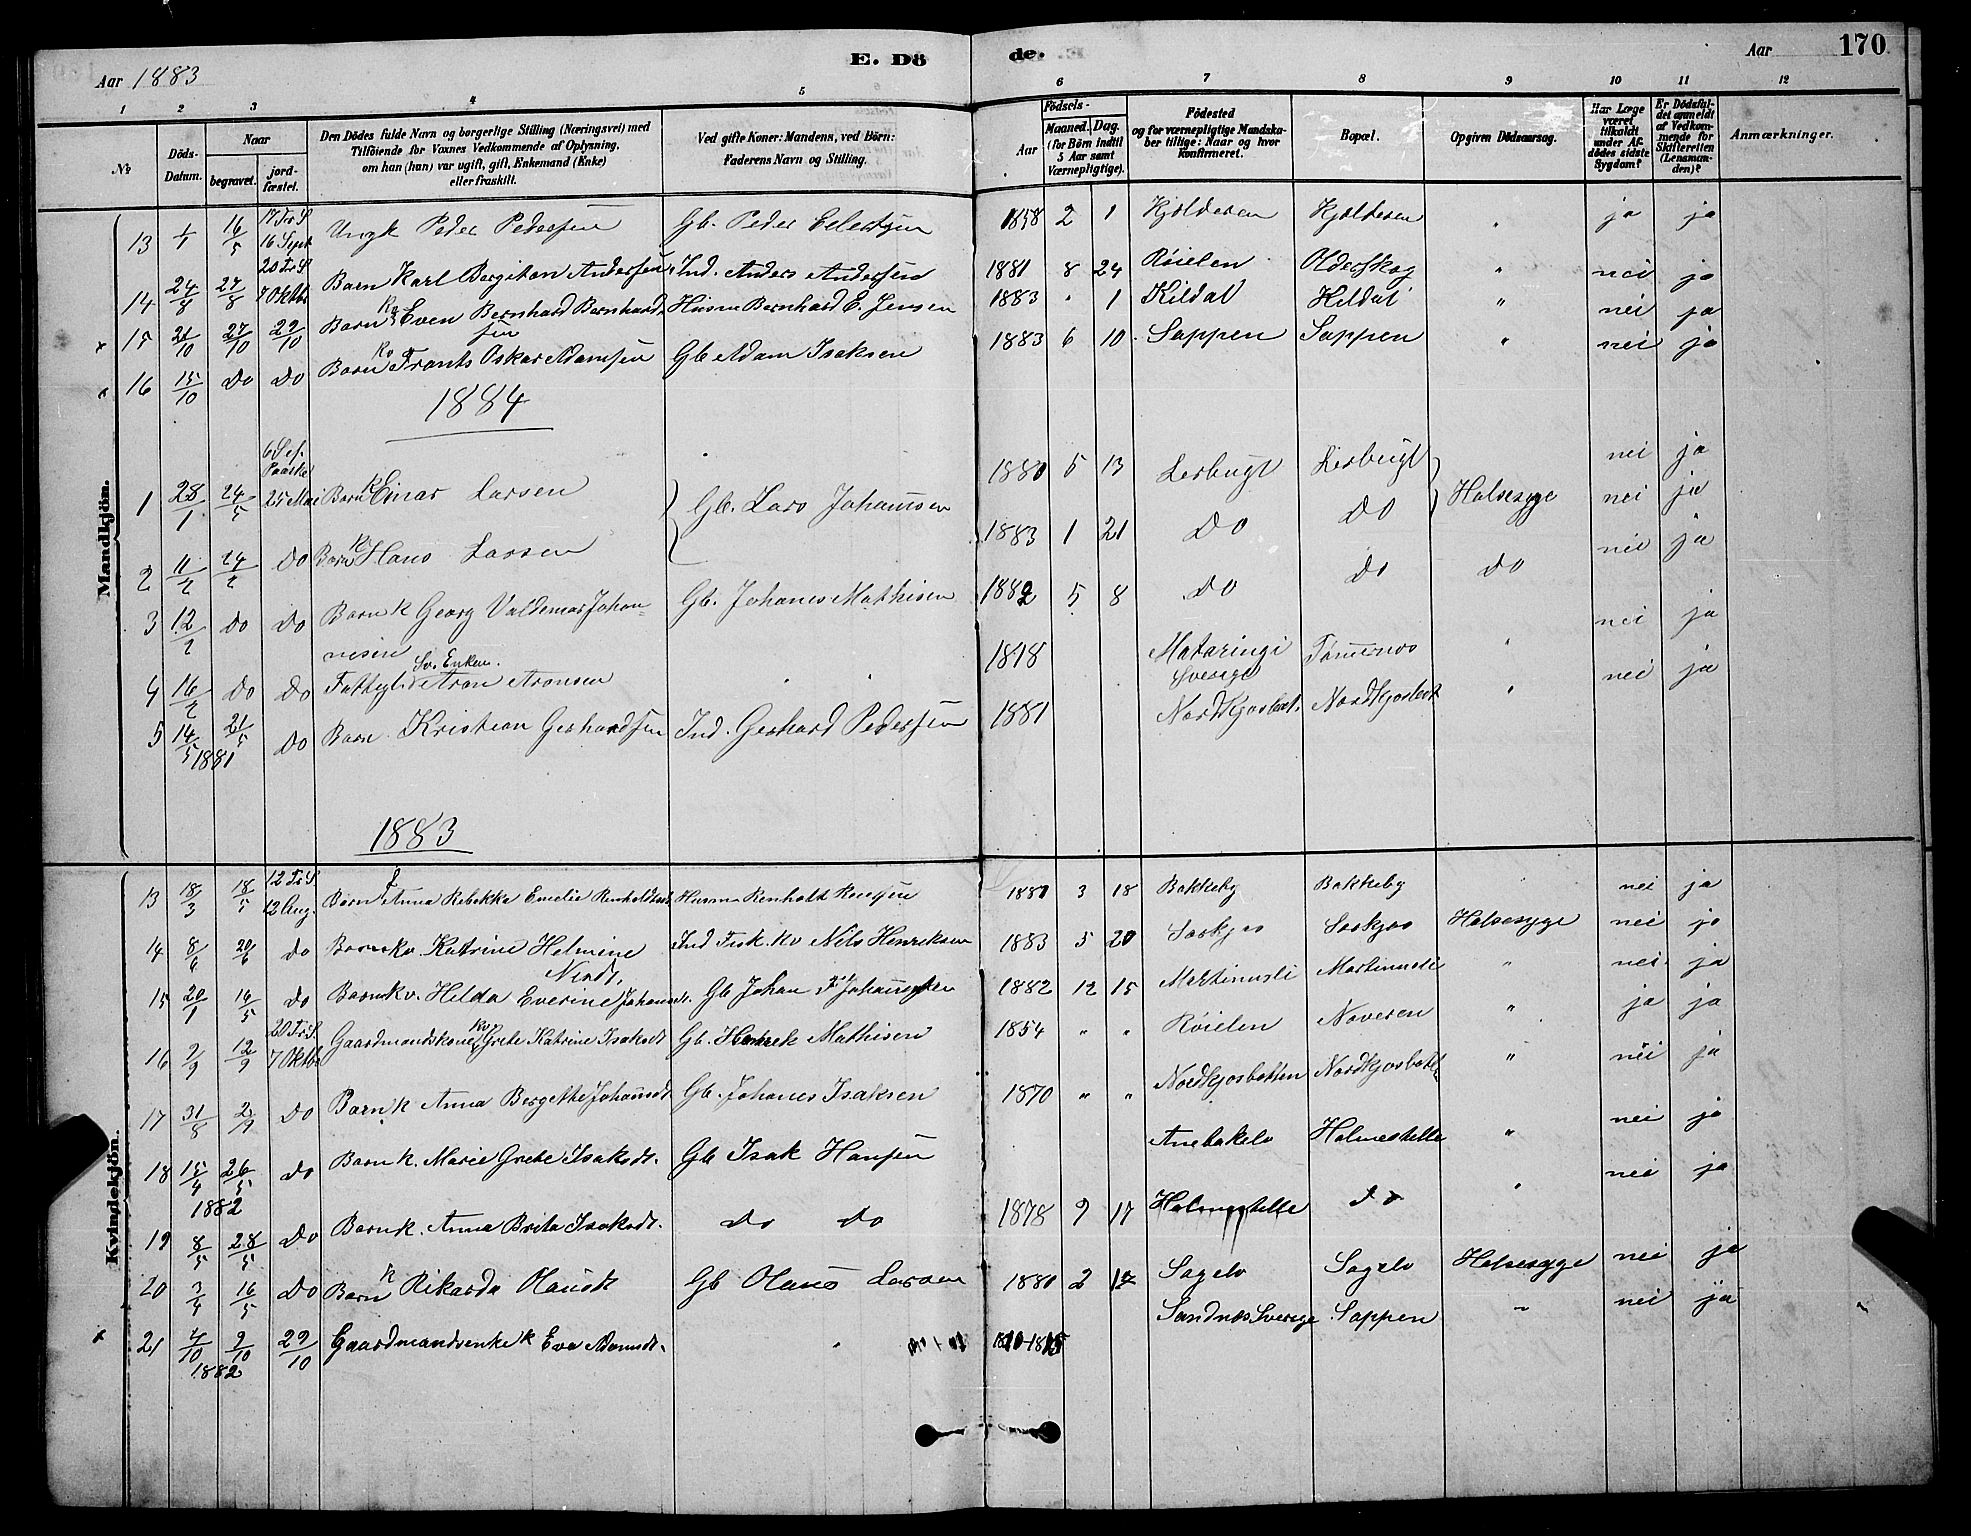 E. Dö de. Aar 170
Aar 1883
1 2 3 4 5 6 7 8 9 10 11 12
№
Döds-Datum.
Naar
begravet.
jord-fæstet.
Den Dödes fulde Navn og borgerlige Stilling (Næringsvei) med
Tilföiende for Voxnes Vedkommende af Oplysning,
om han (hun) var ugift, gift, Enkemand (Enke)
eller fraskilt.
Ved gifte Koner: Mandens, ved Börn:
Faderens Navn og Stilling.
Födsels-
Aar
Maaned. Dag.
(for Börn indtil
5 Aar samt
Værnepligtige).
Födested
og for værnepligtige Mandska-
ber tillige: Naar og hvor
konfirmeret.
Bopæl.
Opgiven Dödsaarsag.
Har Læge
været
tilkaldt
under Af-
dödes sidste
Sygdom?
Er Dödsfal-
det anmeldt
af Vedkom-
mende for
Skifteretten
(Lensman-
den)?
Anmærkninger.
Mandkjön.
13 1/1 16/5 17 Tr S 16 Sept Ungk Peder Pedersen Gb. Peder 1858 2 1 Kjoldesen Kjoldesen " ja ja
14 24/8 27/8 20 Tr S 7 Oktb Barn Karl Bergiton Andersen Ind. Anders Andersen 1881 8 24 Röielen Olderskog " nei ja
15 21/10 27/10 29/10 Barn Kv Even Bernhard Bernhard- Husm Bernhard E. Jensen 1883 " 1 Kildal Kildal " nei ja
sen
16 15/10 Do Do Barn Kv Frants Oskar Adamsen Gb Adam Isaksen 1883 6 10 Sappen Sappen " nei ja
1884
1 28/1 24/5 6 Paaske 25 Mai Barn K Einar Larsen Gb. Lars Johannsen 1880 5 13 Lerbugt Lerbugt Halsesyge nei ja
2 11/2 24/2 Do Barn K Hans Larsen 1883 1 21 Do Do nei ja
3 12/2 Do Do Barn K Georg Valdemar Johan- Gb. Johanes Mathisen 1882 5 8 Do Do Do nei ja
nesen
4 16/2 Do Do Fattigl. Sv. Enkem. Aron Aronsen " 1818 Mataringi Sverige " nei ja
5 14/5 1881 21/5 Do Barn Kristian Gerhardsen Ind. Gerhard Pedersen 1881 Nordkjosbot. Nordkjosbot " nei ja
1883
Kvindekjön.
13 18/3 18/5 12 Tr S 12 Aug. Barn Anna Rebekka Emelie Renholdtsdt Husm Renholdt 1880 3 18 Bakkeby Bakkeby nei ja
14 8/6 20/6 Do Barn kv. Katrine Helmine Ind Fisk. kv Nils Henriksen 1883 5 20 Halsesyge nei ja
Nilsdt.
15 20/1 16/5 Do Barn kv. Hilda Everine Johansdt. Gb Johan 1882 12 15 Martinusli Martinusli " nei ja
16 2/9 12/9 20 Tr S. 7 Oktb. Gaardmandskone kv Grete Katrine Isaksdt Gb. Henrik Mathisen 1854 " " Röielen Naveren " ja ja
17 31/8 2/9 Do Barn k Anna Bergitte Johansdt Gb. Johanes Isaksen 1870 " " Nordkjosbotten Nordkjosbot " nei ja
18 15/4 1882 26/5 Do Barn k. Marie Grete Isaksdt. Gb Isak Hansen Holmestelle " nei ja
19 8/5 28/5 Do Barn k. Anna Brita Isaksdt. Do Do 1878 9 17 Holmestelle Do " nei ja
20 3/4 16/5 Do Barn k Rikarda Olausdt Gb Olaus Larsen 1880 2 17 Sagelv Sagelv Halsesyge nei ja
21 7/10 1882 9/10 29/10 Gaardmandsenke k Eva Adamsdt. " Sverige Sappen " nei ja